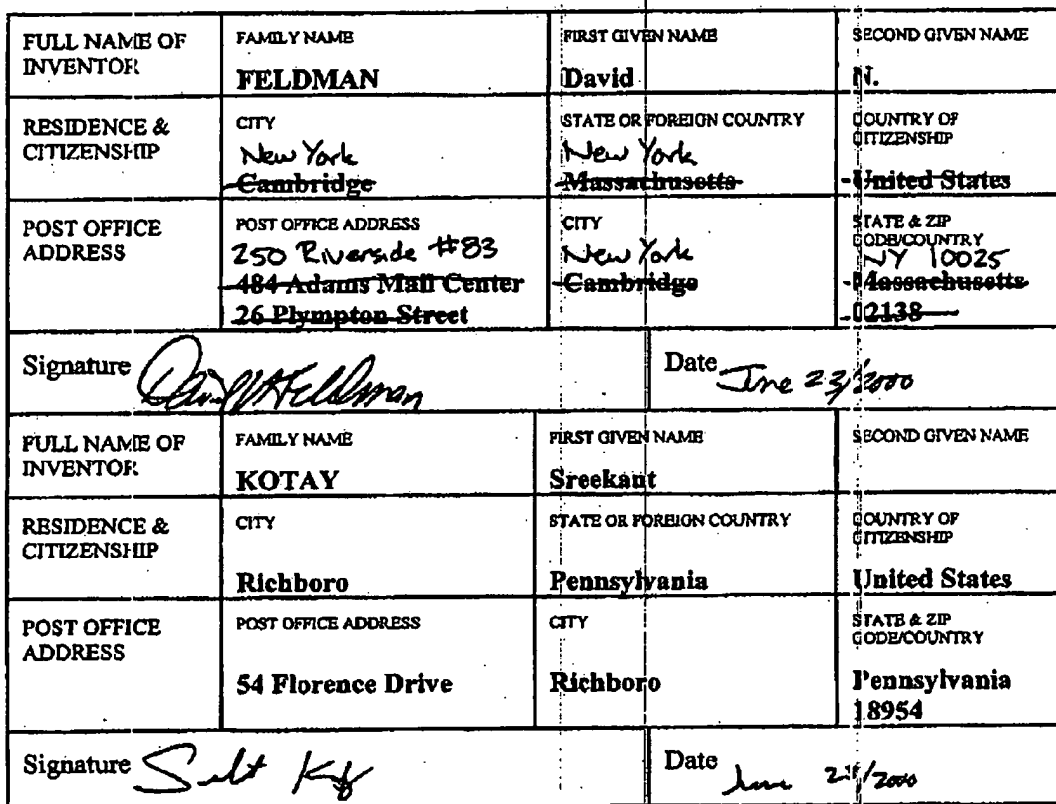 FULL NAME OF INVENTOR
FAMILY NAME
FELDMAN
FIRST GIVEN NAME
David
SECOND GIVEN NAME
N.
RESIDENCE & CITIZENSHIP
CITY
New York
Cambridge
STATE OR FOREIGN COUNTRY
New York
Massachusetts
COUNTRY OF CITIZENSHIP
United States
POST OFFICE ADDRESS
POST OFFICE ADDRESS
250 Riverside #83
484 Adams Mail Center
26 Plympton Street
CITY
New York
Cambridge
STATE & ZIP CODE/COUNTRY
NY 10025
Massachusetts
02138
Signature David N Feldman
Date June 23/2000
FULL NAME OF INVENTOR
FAMILY NAME
KOTAY
FIRST GIVEN NAME
Sreekant
SECOND GIVEN NAME
RESIDENCE & CITIZENSHIP
CITY
Richboro
STATE OR FOREIGN COUNTRY
Pennsylvania
COUNTRY OF CITIZENSHIP
United States
POST OFFICE ADDRESS
POST OFFICE ADDRESS
54 Florence Drive
CITY
Richboro
STATE & ZIP CODE/COUNTRY
Pennsylvania
18954
Signature
Date June /2000